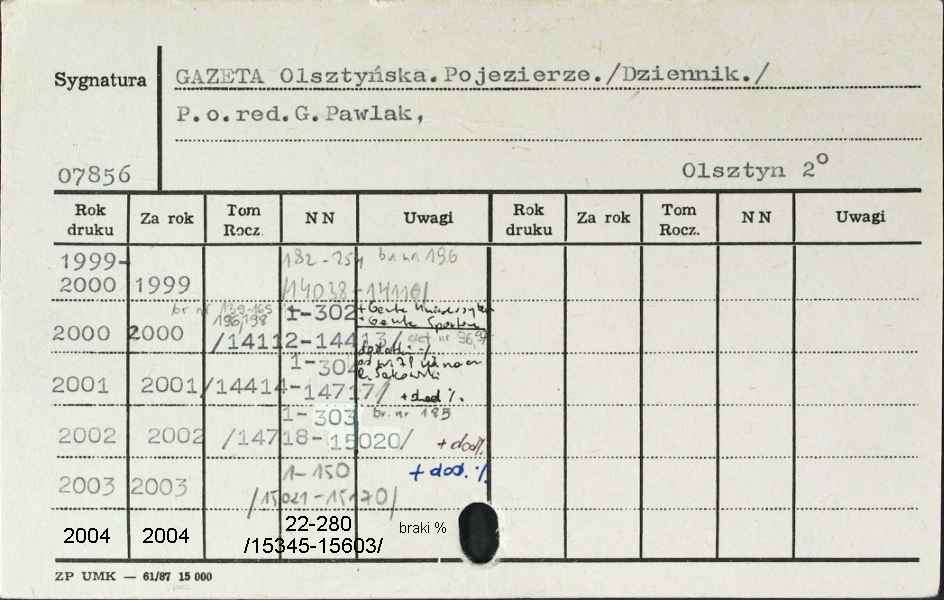 Sygnatura
GAZETA Olsztyńska.Pojezierze./Dziennik./
P.o.red.G.Pawlak,
07856
Olsztyn 2°
Rok druku Za rok Tom Rocz. NN Uwagi Rok druku Za rok Tom Rocz. NN Uwagi
1999- 182-254 br nr 196
2000 1999 /14038-14110/
br nr 139-165 1-302 + Gazeta Uniwersytecka
196,198 + Gazeta Sportowa
2000 2000 /14112-14413/ nr 36,37
dodatki -/
1-304 od nr 71 red. nacz.
Sokowski
2001 2001 /14414-14717/ + dod %
1-303 br. nr 185
2002 2002 /14718-15020/ + dod %
2003 2003 1-150 + dod. %
/15021-15170/
2004 2004 22-280 braki %
/15345-15603/
ZP UMK — 61/87 15 000